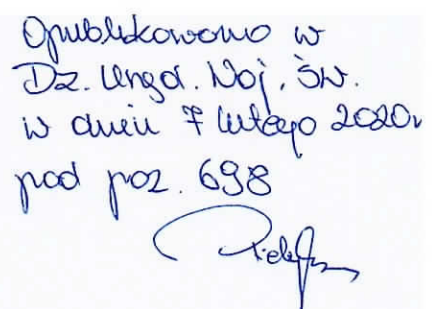 Opublikowano w
Dz. Urzęd. Woj. Św.
w dniu 7 lutego 2020r
pod poz. 698